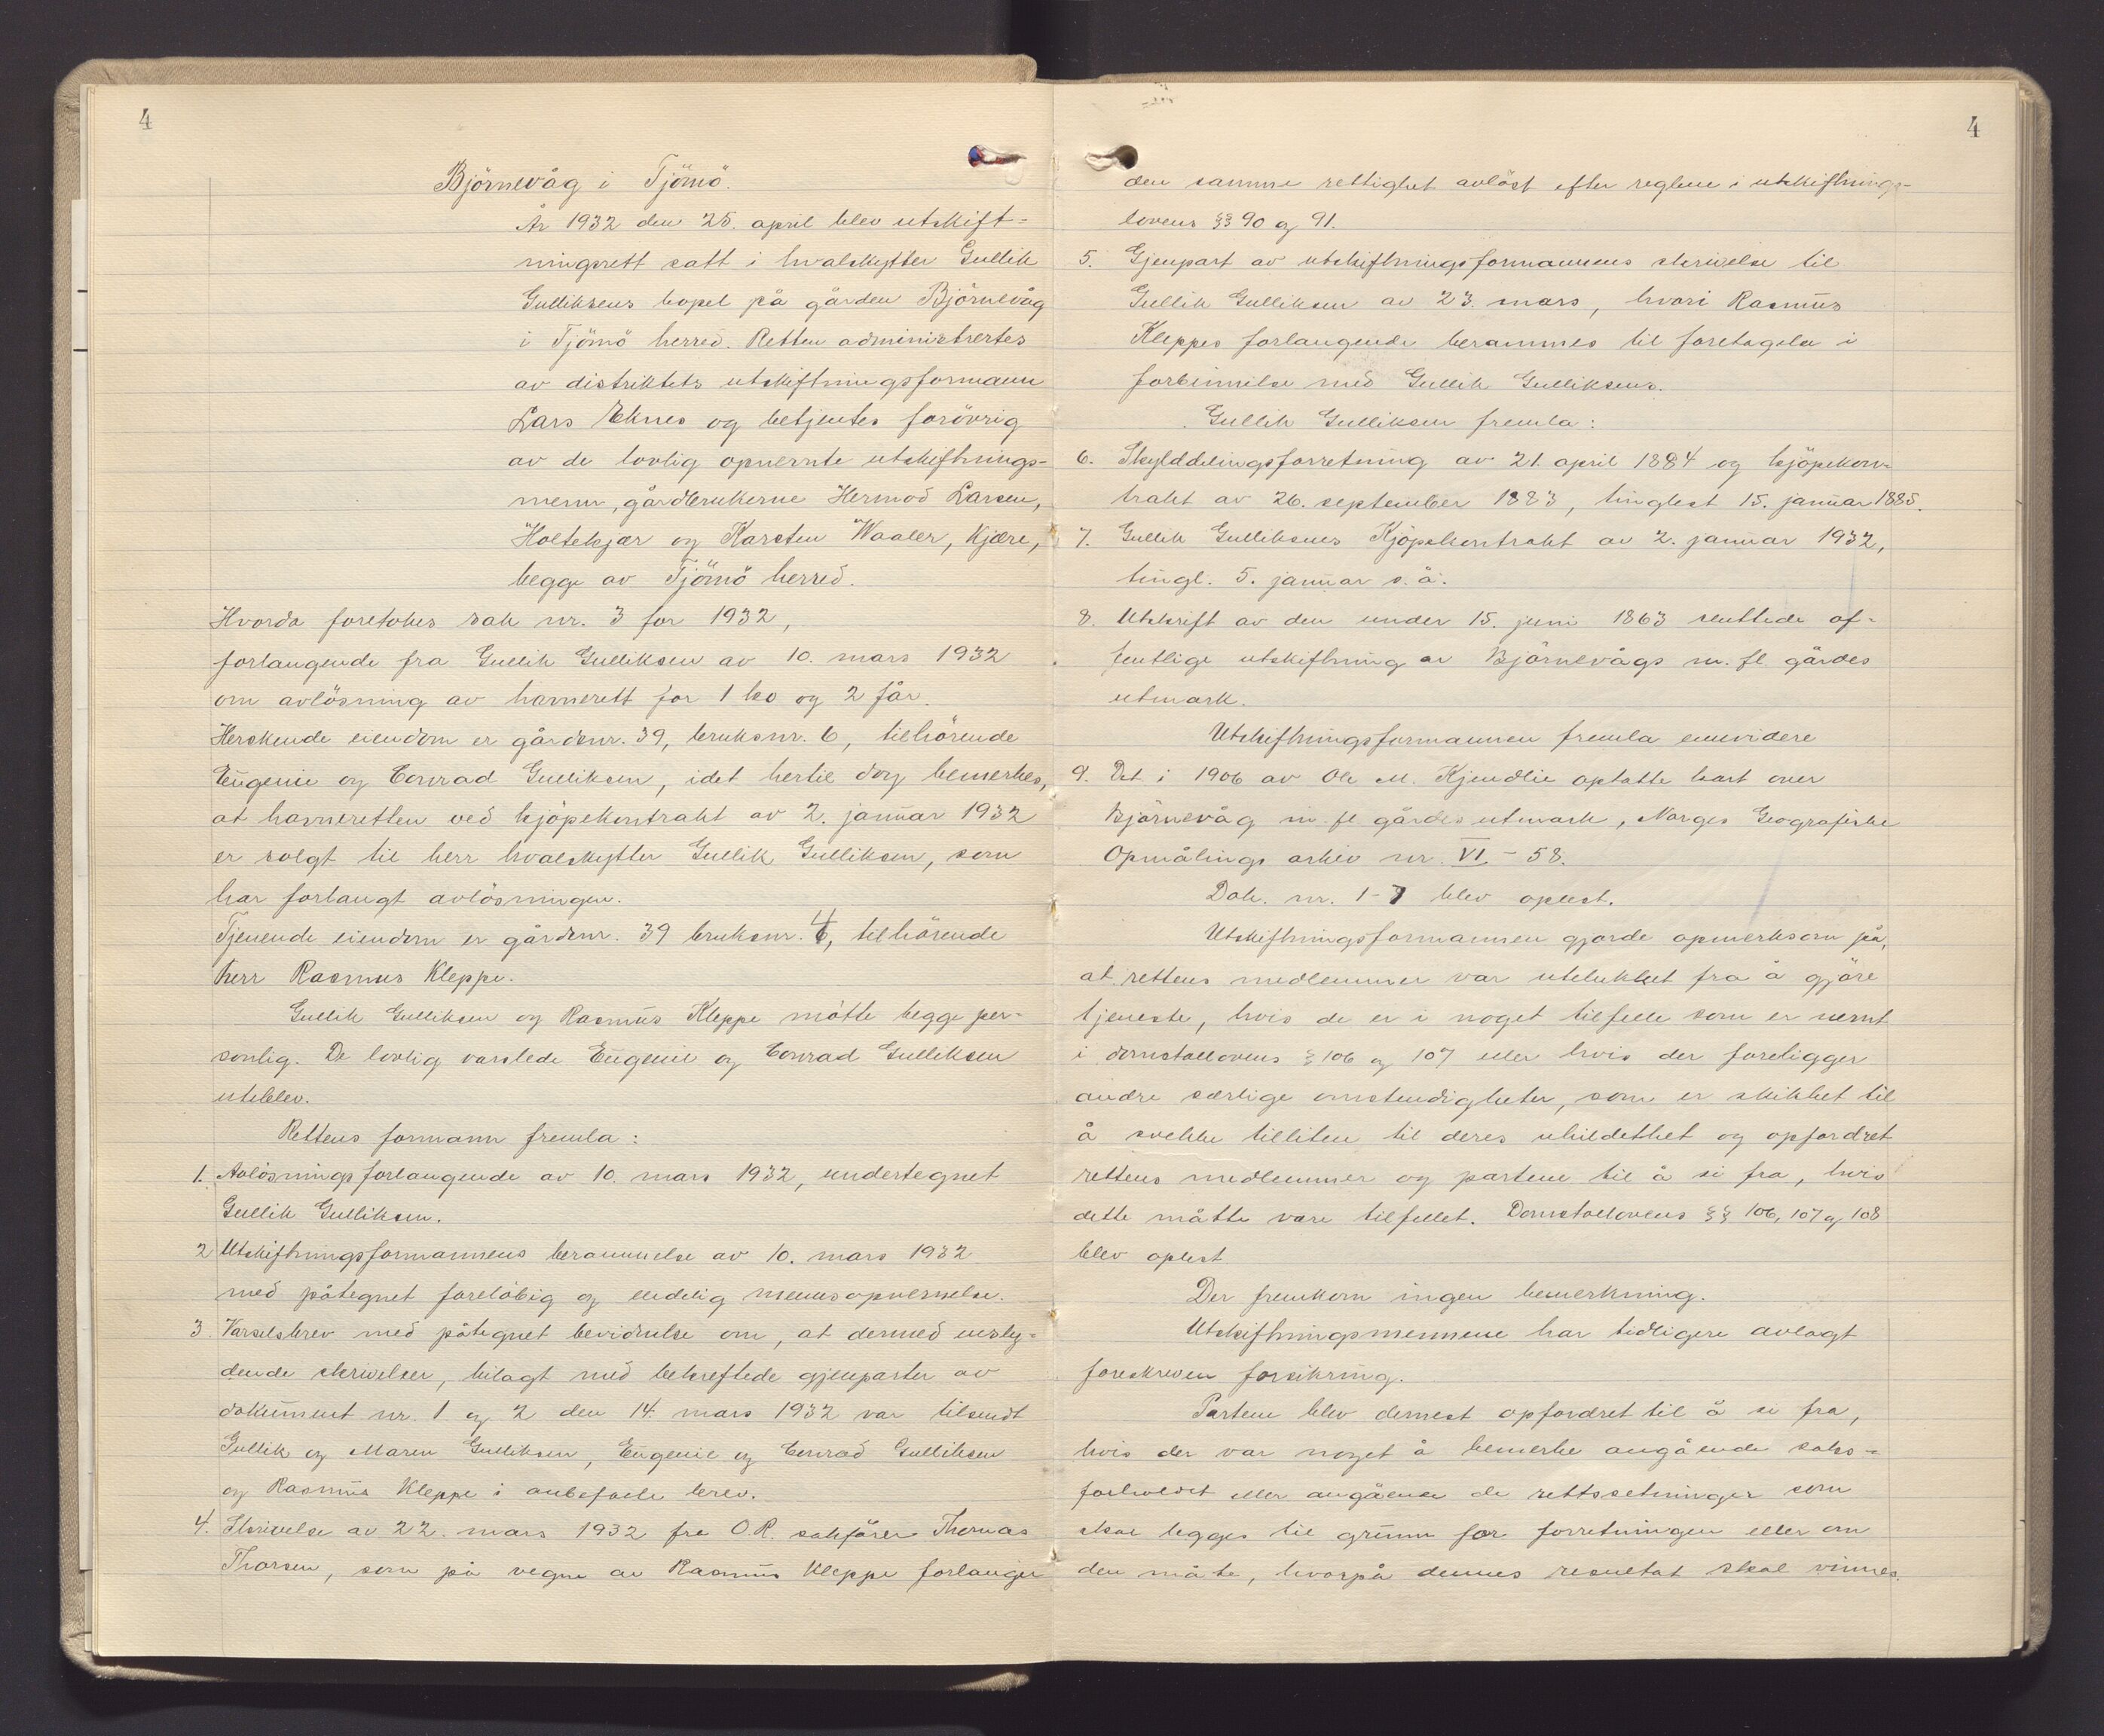 4
Björnevåg i Tjömö.
År 1932 den 25. april blev utskift-
ningsrett satt i hvalskytter Gullik
Gulliksens bopel på gården Björnevåg
i Tjömö herred. Retten administrertes
av distriktets utskiftningsformann
Lars Eknes og betjentes forövrig
av de lovlig opnevnte utskiftnings-
menn, gårdbrukerne Hermod Larsen,
Holtekjær og Karsten Waaler, Kjære,
begge av Tjömö herred.
Hvorda foretokes sak nr. 3 for 1932,
forlangende fra Gullik Gulliksen av 10. mars 1932
om avlösning av havnerett for 1 ko og 2 får.
Herskende eiendom er gårdsnr. 39, bruksnr. 6, tilhörende
Eugenie og Conrad Gulliksen, idet hertil dog bemerkes,
at havneretten ved kjöpekontrakt av 2. januar 1932
er solgt til herr hvalskytter Gullik Gulliksen, som
har forlangt avlösningen.
Tjenende eiendom er gårdsnr. 39 bruksnr. 4, tilhörende
herr Rasmus Kleppe.
Gullik Gulliksen og Rasmus Kleppe mötte begge per-
sonlig. De lovlig varslede Eugenie og Conrad Gulliksen
uteblev.
Rettens formann fremla:
1. Avlösningsforlangende av 10. mars 1932, undertegnet
Gullik Gulliksen.
2 Utskiftningsformannens berammelse av 10. mars 1932
med påtegnet forelöbig og endelig mennsopnevnelse.
3. Varselsbrev med påtegnet bevidnelse om, at dermed ensly-
dende skrivelser, bilagt med bekreftede gjenparter av
dokument nr. 1 og 2 den 14. mars 1932 var tilsendt
Gullik og Maren Gulliksen, Eugenie og Conrad Gulliksen
og Rasmus Kleppe i anbefalt brev.
4. Skrivelse av 22. mars 1932 fra O.R. sakförer Thomas
Thorsen, som på vegne av Rasmus Kleppe forlanger
4
den samme rettighet avlöst efter reglene i utskiftnings-
lovens §§ 90 og 91.
5. Gjenpart av utskiftningsformannens skrivelse til
Gullik Gulliksen av 23. mars, hvori Rasmus
Kleppes forlangende berammes til foretagelse i
forbinnelse med Gullik Gulliksens.
Gullik Gulliksen fremla:
6. Skylddelingsforretning av 21. april 1884 og kjöpekon-
trakt av 26. september 1883, tinglest 15. januar 1885.
7. Gullik Gulliksens Kjöpekontrakt av 2. januar 1932,
tingl. 5. januar s. å.
8. Utskrift av den under 15. juni 1863 sluttede of-
fentlige utskiftning av Björnevågs m. fl. gårdes
utmark.
Utskiftningsformannen fremla enevidere
9. Det i 1906 av Ole M. Kjendlie optatte kart over
Björnevåg m. fl. gårdes utmark, Norges Geografiske
Opmålings arkiv nr. VI - 58.
Dok. nr. 1-7 blev oplest.
Utskiftningsformannen gjorde opmerksom på,
at rettens medlemmer var utelukket fra å gjöre
tjeneste, hvis de er i noget tilfelle som er nevnt
i domstollovens § 106 og 107 eller hvis der foreligger
andre særlige omstendigheter, som er skikket til
å svekke tilliten til deres uhildethet og opfordret
rettens medlemmer og partene til å si fra, hvis
dette måtte være tilfellet. Domstollovens §§ 106, 107 og 108
blev oplest
Der fremkom ingen bemerkning.
Utskiftningsmennene har tidligere avlagt
foreskreven forsikring.
Partene blev dernest opfordret til å si fra,
hvis der var noget å bemerke angående saks-
forholdet eller angående de rettssetninger som
skal legges til grunn for forretningen eller om
den måte, hvorpå dennes resultat skal vinnes.